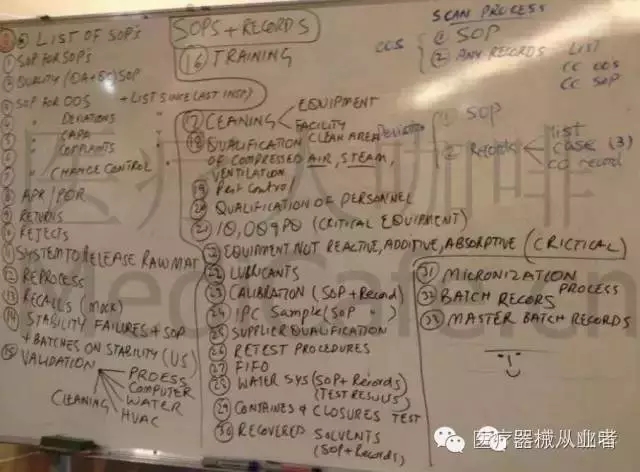 LIST OF SOP's
① SOP FOR SOP's
SOP
SOP FOR OOS + LIST SINCE LAST INSP)
" DEVIATIONS "
" CAPA "
" COMPLAINTS "
" CHANGE CONTROL "
⑧ APR / PQR
⑨ RETURNS
REJECTS
⑪ SYSTEM TO RELEASE RAW MAT
⑫ REPROCESS
⑬ RECALLS (MOCK)
⑭ STABILITY FAILURES + SOP
+ BATCHES ON STABILITY (US)
⑮ VALIDATION
PROESS
COMPUTER
WATER
HVAC
CLEANING
SOPS + RECORDS
⑯ TRAINING
CEANING
EQUIPMENT
FACILITY
QUALIFICATION CLEAN AREA
OF COMPRESSED AIR, STEAM,
VENTILATION
⑲ Pest Control
QUALIFICATION OF PERSONNEL
(CRITICAL EQUIPMENT)
EQUIPMENT NOT REACTIVE, ADDITIVE, ABSORPTIVE (CRICTICAL)
LUBRICANTS
㉓ CALIBRATION (SOP + Record)
㉔ IPC Sample (SOP " )
㉕ SUPPLIER QUALIFICATION
㉖ RETEST PROCEDURES
㉗ FIFO
㉘ WATER SYS (SOP + Records)
(TEST RESULTS)
㉙ CONTAINES & CLOSURES TEST
㉚ RECOVERED SOLVENTS
(SOP + Records)
SCAN PROCESS
OOS
① SOP
② ANY RECORDS
LIST
CC OOS
CC SOP
Deviation
① SOP
Records
List
case (3)
CC record
㉛ MICRONIZATION
PROCESS
㉜ BATCH RECORS
㉝ MASTER BATCH RECORDS
医疗器械从业者